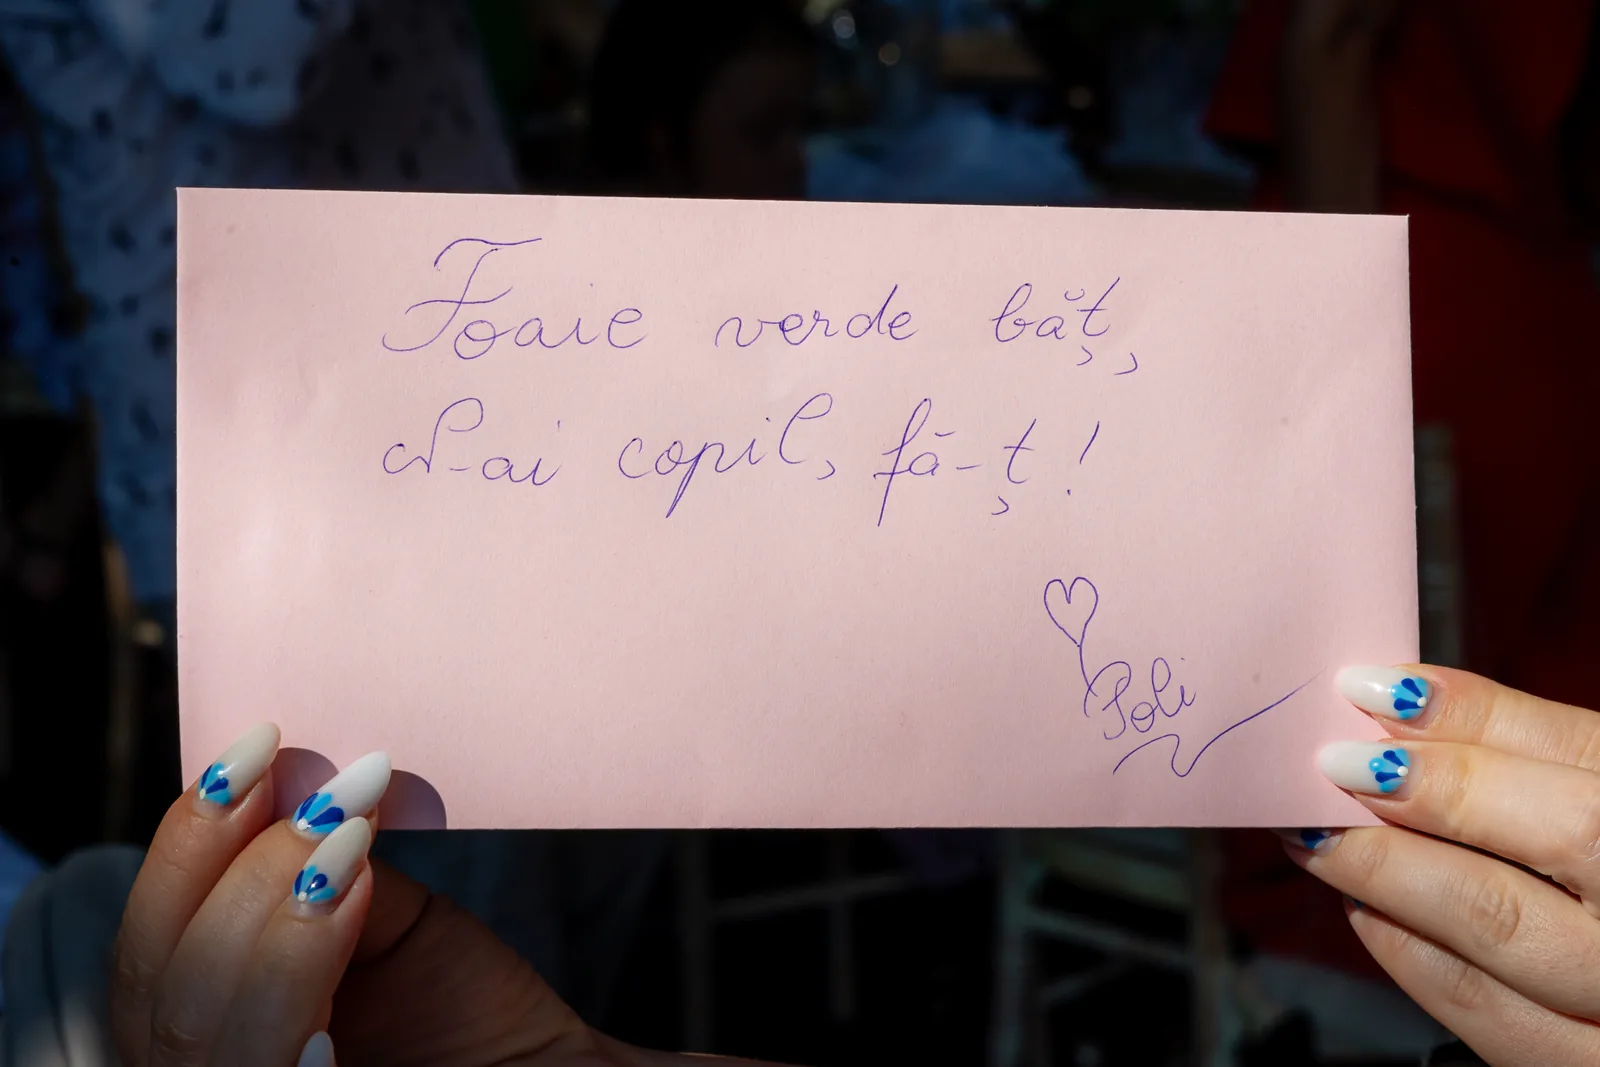 Foaie verde băț,
N-ai copil, fă-ț!
Poli